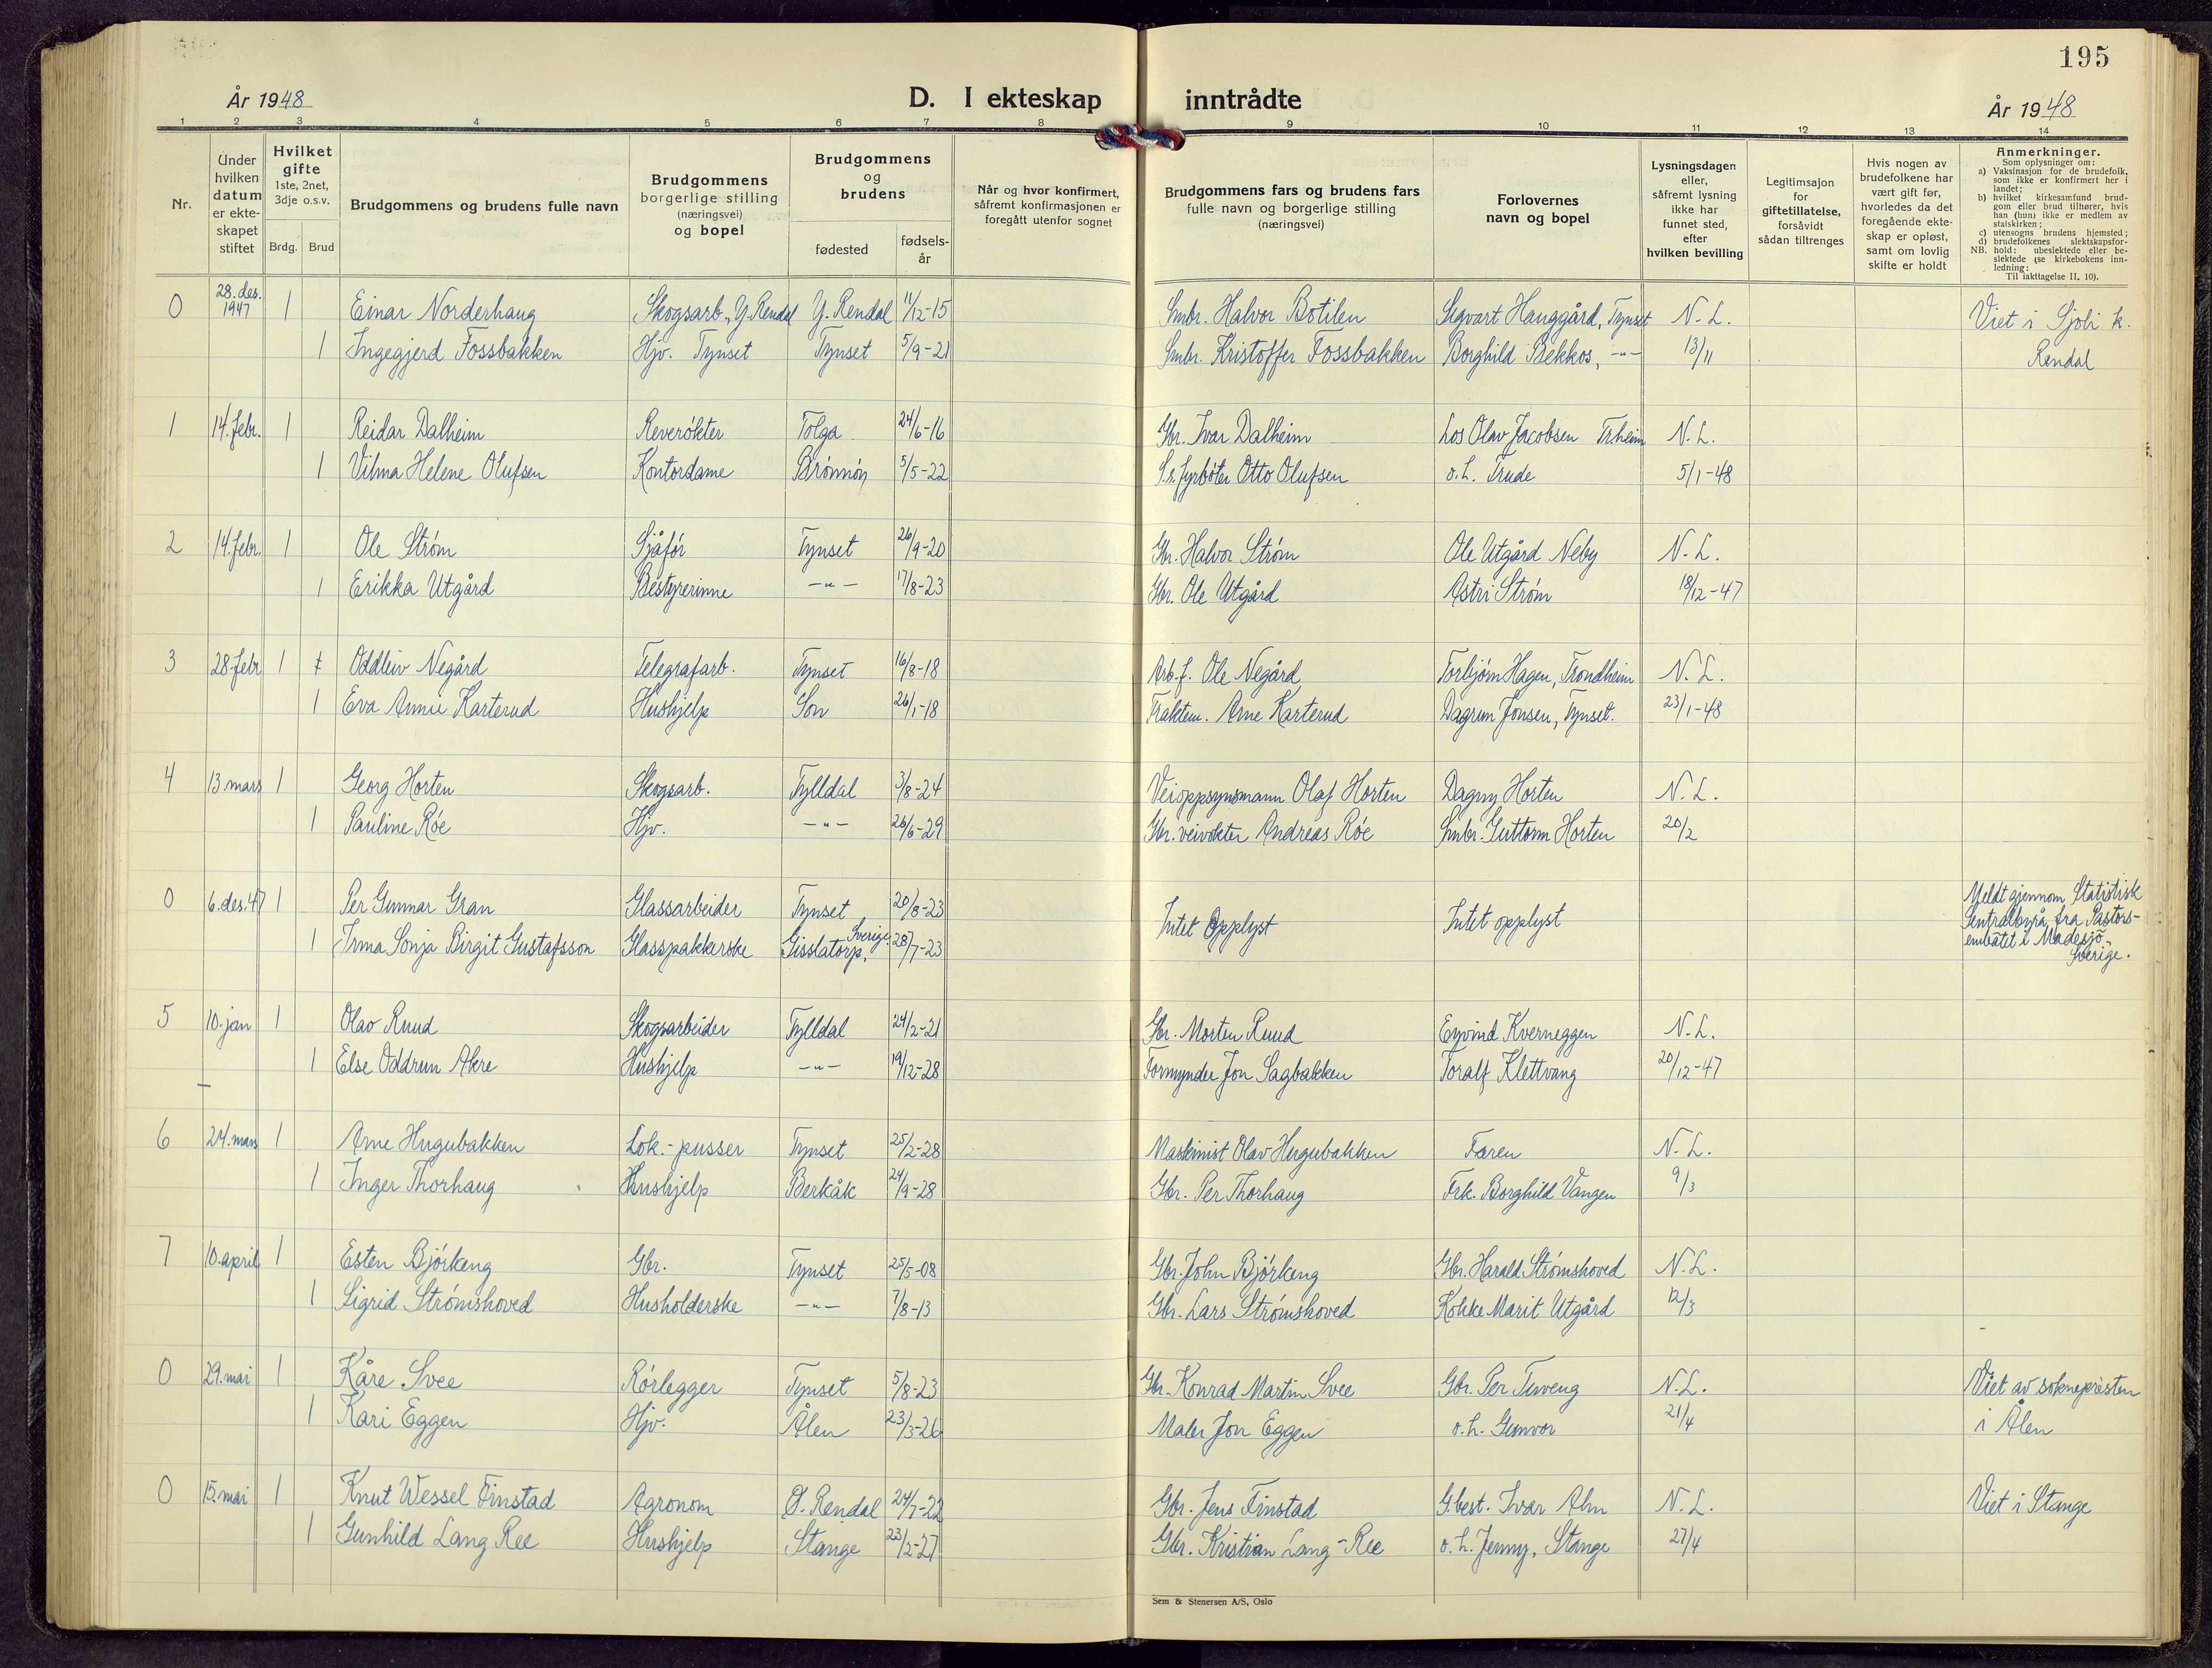 195
År 1948
D. I ekteskap inntrådte
År 1948
1 2 3 4 5 6 7 8 9 10 11 12 13 14
Nr.
Under hvilken datum er ekteskapet stiftet
Hvilket gifte 1ste, 2net, 3dje o.s.v.
Brdg. Brud
Brudgommens og brudens fulle navn
Brudgommens borgerlige stilling (næringsvei) og bopel
Brudgommens og brudens
fødested
fødsels-år
Når og hvor konfirmert, såfremt konfirmasjonen er foregått utenfor sognet
Brudgommens fars og brudens fars fulle navn og borgerlige stilling (næringsvei)
Forlovernes navn og bopel
Lysningsdagen eller, såfremt lysning ikke har funnet sted, efter hvilken bevilling
Legitimsajon for giftetillatelse, forsåvidt sådan tiltrenges
Hvis nogen av brudefolkene har vært gift før, hvorledes da det foregående ekteskap er opløst, samt om lovlig skifte er holdt
Anmerkninger.
Som oplysninger om:
a) Vaksinasjon for de brudefolk, som ikke er konfirmert her i landet;
b) hvilket kirkesamfund brudgom eller brud tilhører, hvis han (hun) ikke er medlem av statskirken;
c) utensogns brudens hjemsted;
d) brudefolkenes slektskapsforhold: ubeslektede eller beslektede (se kirkebokens innledning:
NB. Til iakttagelse II, 10).
0 28. des. 1947 1 Einar Norderhaug Skogsarb., Y. Rendal Y. Rendal 11/12-15 Smbr. Halvor Botilen Sigvart Hanggård, Tynset N. L. Viet i Sjøli k.
1 Ingegjerd Fossbakken Hjv. Tynset Tynset 5/9-21 Smbr. Kristoffer Fossbakken Borghild Bekkos, -"- 13/11 Rendal
1 14. febr. 1 Reidar Dalheim Reverøkter Tolga 24/6-16 Gbr. Ivar Dalheim Los Olav Jacobsen Tr.heim N. L.
1 Vilma Helene Olufsen Kontordame Brønnøy 5/5-22 S.s. fyrbøter Otto Olufsen o. h. Trude 5/1-48
2 14. febr. 1 Ole Strøm Sjåfør Tynset 26/9-20 Gbr. Halvor Strøm Ole Utgård Neby N. L.
1 Erikka Utgård Bestyrerinne -"- 17/8-23 Gbr. Ole Utgård Astri Strøm 18/12-47
3 28. febr 1 Oddleiv Negård Telegrafarb. Tynset 16/8-18 Arb. f. Ole Negård Torbjørn Hagen, Trondheim N. L.
1 Eva Annie Karterud Hushjelp Son 26/1-18 Traktem. Arne Karterud Dagrun Jonsen, Tynset. 23/1-48
4 13. mars 1 Georg Horten Skogsarb. Tylldal 3/8-24 Veioppsynsmann Olaf Horten Dagny Horten N. L.
1 Pauline Røe Hjv. -"- 26/6-29 Gbr. veivokter Andreas Røe Smbr. Guttorm Horten 20/2
0 6. des. 47 1 Per Gunnar Gran Glassarbeider Tynset 20/8-23 Intet Opplyst Intet opplyst Meldt gjennom Statistisk
1 Irma Sonja Birgit Gustafsson Glasspakkerske Gisslatorp, Sverige 28/7-23 Sentralbyrå fra Pastors-
embatet i Madesjö,
Sverige.
5 10. jan 1 Olav Ruud Skogsarbeider Tylldal 24/2-21 Gbr. Morten Ruud Eyvind Kverneggen N. L.
1 Else Oddrun Akre Hushjelp -"- 19/12-28 Formynder Jon Sagbakken Toralf Klettvang 20/12-47
6 24. mars 1 Arne Hugubakken Lok.-pusser Tynset 25/2-28 Maskinist Olav Hugubakken Faren N. L.
1 Inger Thorhaug Hushjelp Berkåk 24/9-28 Gbr. Per Thorhaug Frk. Borghild Vangen 9/3
7 10. april 1 Esten Bjørkeng Gbr. Tynset 25/5-08 Gbr. John Bjørkeng Gbr. Harald Strømshoved N. L.
1 Sigrid Strømshoved Husholderske -"- 7/8-13 Gbr. Lars Strømshoved Kokke Marit Utgård 12/3
0 29. mai 1 Kåre Svee Rørlegger Tynset 5/8-23 Gbr. Konrad Martin Svee Gbr. Per Tuveng N. L. Viet av soknepresten
1 Kari Eggen Hjv. Ålen 23/3-26 Maler Jon Eggen o. h. Gunvor 21/4 i Ålen
0 15. mai 1 Knut Wessel Finstad Agronom Ø. Rendal 24/7-22 Gbr. Jens Finstad G.best. Ivar Alm N. L. Viet i Stange
1 Gunhild Lang Ree Hushjelp Stange 23/2-27 Gbr. Kristian Lang-Ree o. h. Jenny, Stange 27/4
Sem & Stenersen A/S, Oslo